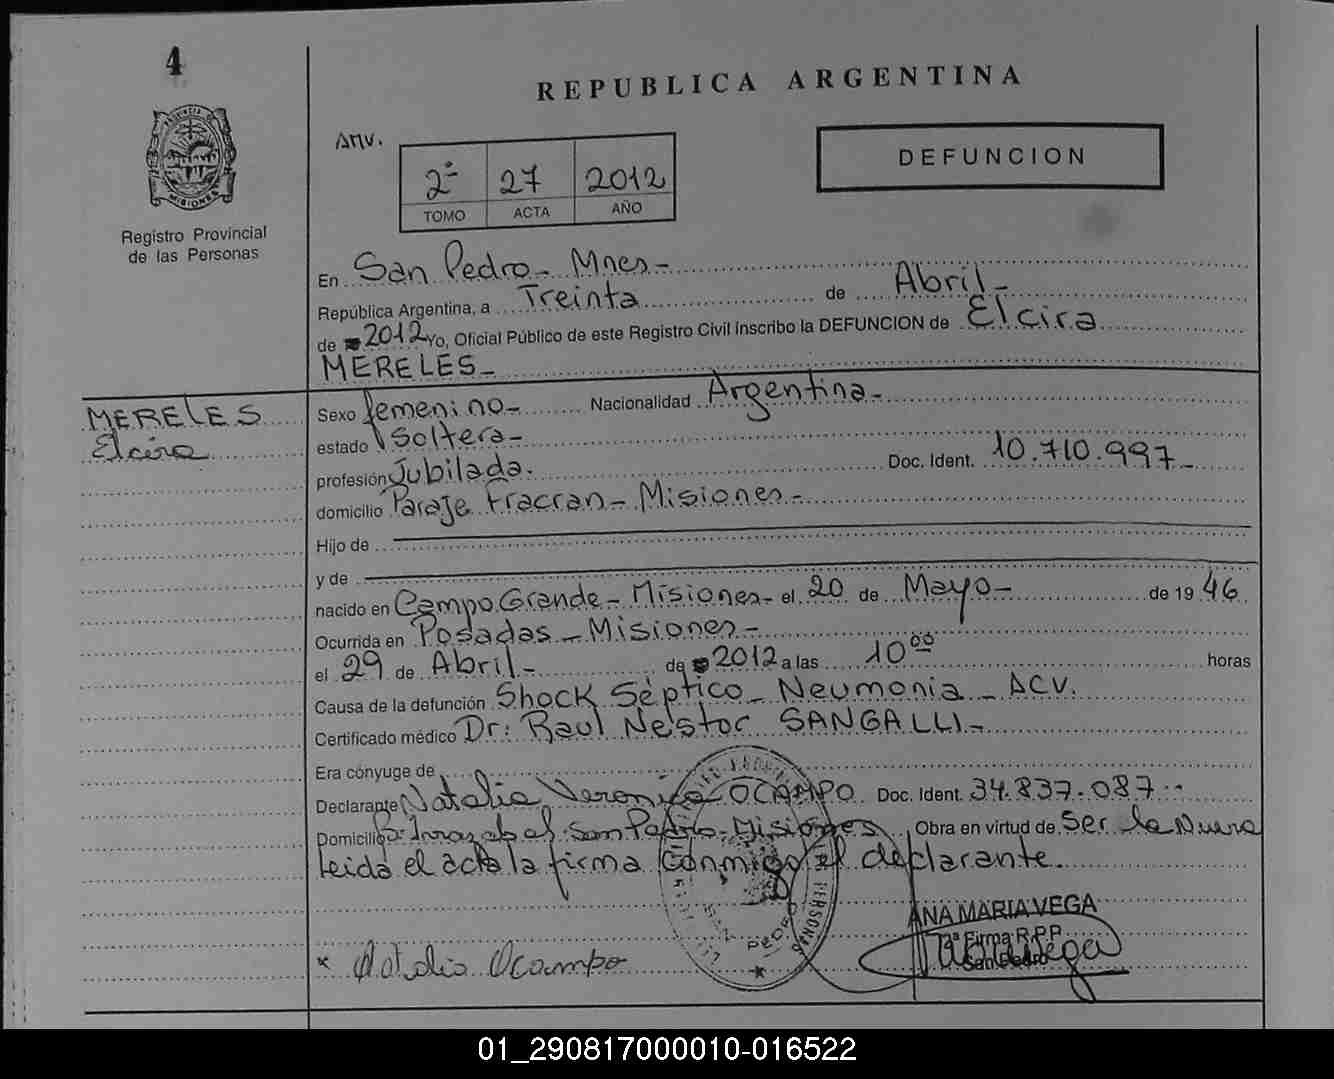 4
REPUBLICA ARGENTINA
Anv.
2º 27 2012
TOMO ACTA AÑO
DEFUNCION
PROVINCIA DE MISIONES
Registro Provincial
de las Personas
En San Pedro - Mnes -
República Argentina, a Treinta de Abril -
de 2012 Yo, Oficial Público de este Registro Civil inscribo la DEFUNCION de Elcira
MERELES -
MERELES
Elcira
Sexo femenino - Nacionalidad Argentina -
estado Soltera -
profesión Jubilada. Doc. Ident. 10.710.997 -
domicilio Paraje Fracran - Misiones -
Hijo de
y de
nacido en Campo Grande - Misiones - el 20 de Mayo - de 19 46
Ocurrida en Posadas - Misiones -
el 29 de Abril - de 2012 a las 10 00 horas
Causa de la defunción Shock Séptico - Neumonia - ACV.
Certificado médico Dr: Raul Nestor SANGALLI -
Era cónyuge de
Declarante Natalia Veronica OCAMPO Doc. Ident. 34.837.087 -
Domicilio Bº Irrazabal San Pedro - Misiones Obra en virtud de Ser la Nuera
Leida el acta la firma conmigo el declarante.
ANA MARIA VEGA
1ª Firma R.P.P.
San Pedro
x Natalia Ocampo
01_290817000010-016522